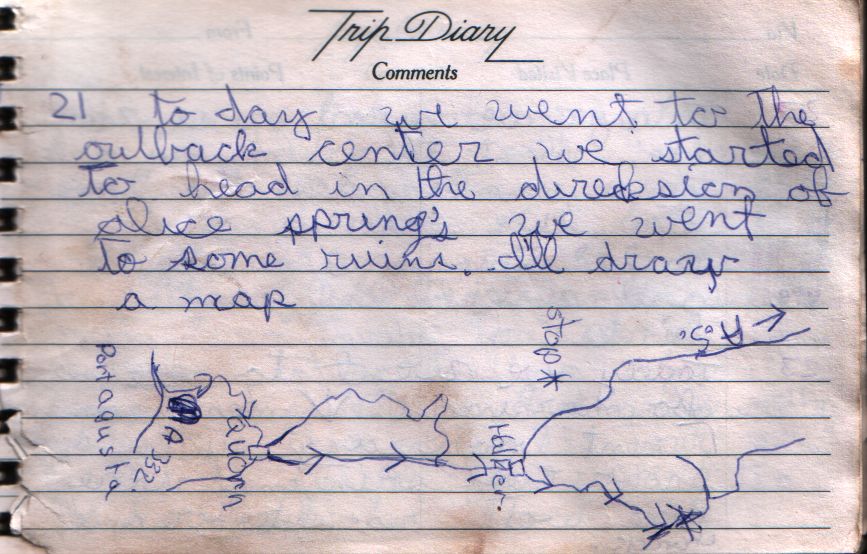 Trip Diary
Comments
21 to day we went to the
outback center we started
to head in the direcksion of
alice spring's we went
to some ruins. I'll draw
a map
Stop *
Port agusta
Quorn